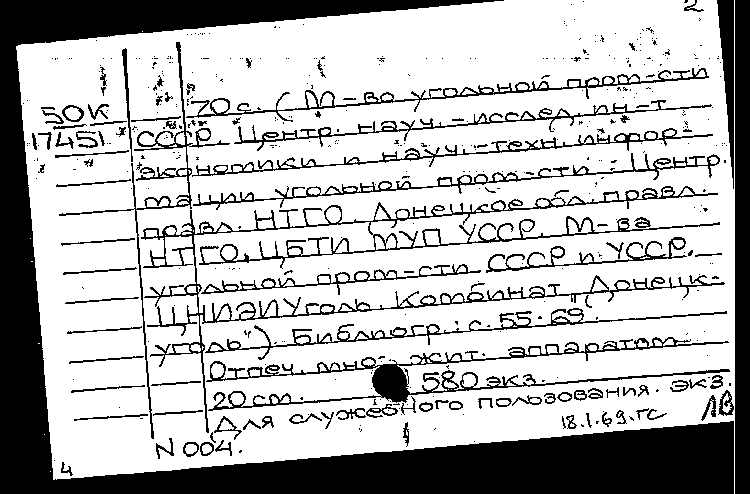 2
50К 70 с. (М-во угольной пром-сти
17451 СССР. Центр. науч.-исслед. ин-т
экономики и науч.-техн. инфор-
мации угольной пром-сти. Центр.
правл. НТГО. Донецкое обл. правл.
НТГО. ЦБТИ МУП УССР. М-ва
угольной пром-сти СССР и УССР.
ЦНИЭИУголь. Комбинат "Донецк-
уголь"). Библиогр.: с. 55-69.
Отпеч. множит. аппаратом
20 см. 580 экз.
(Для служебного пользования. экз.
N 004. 18.1.69.гс ЛВ
4